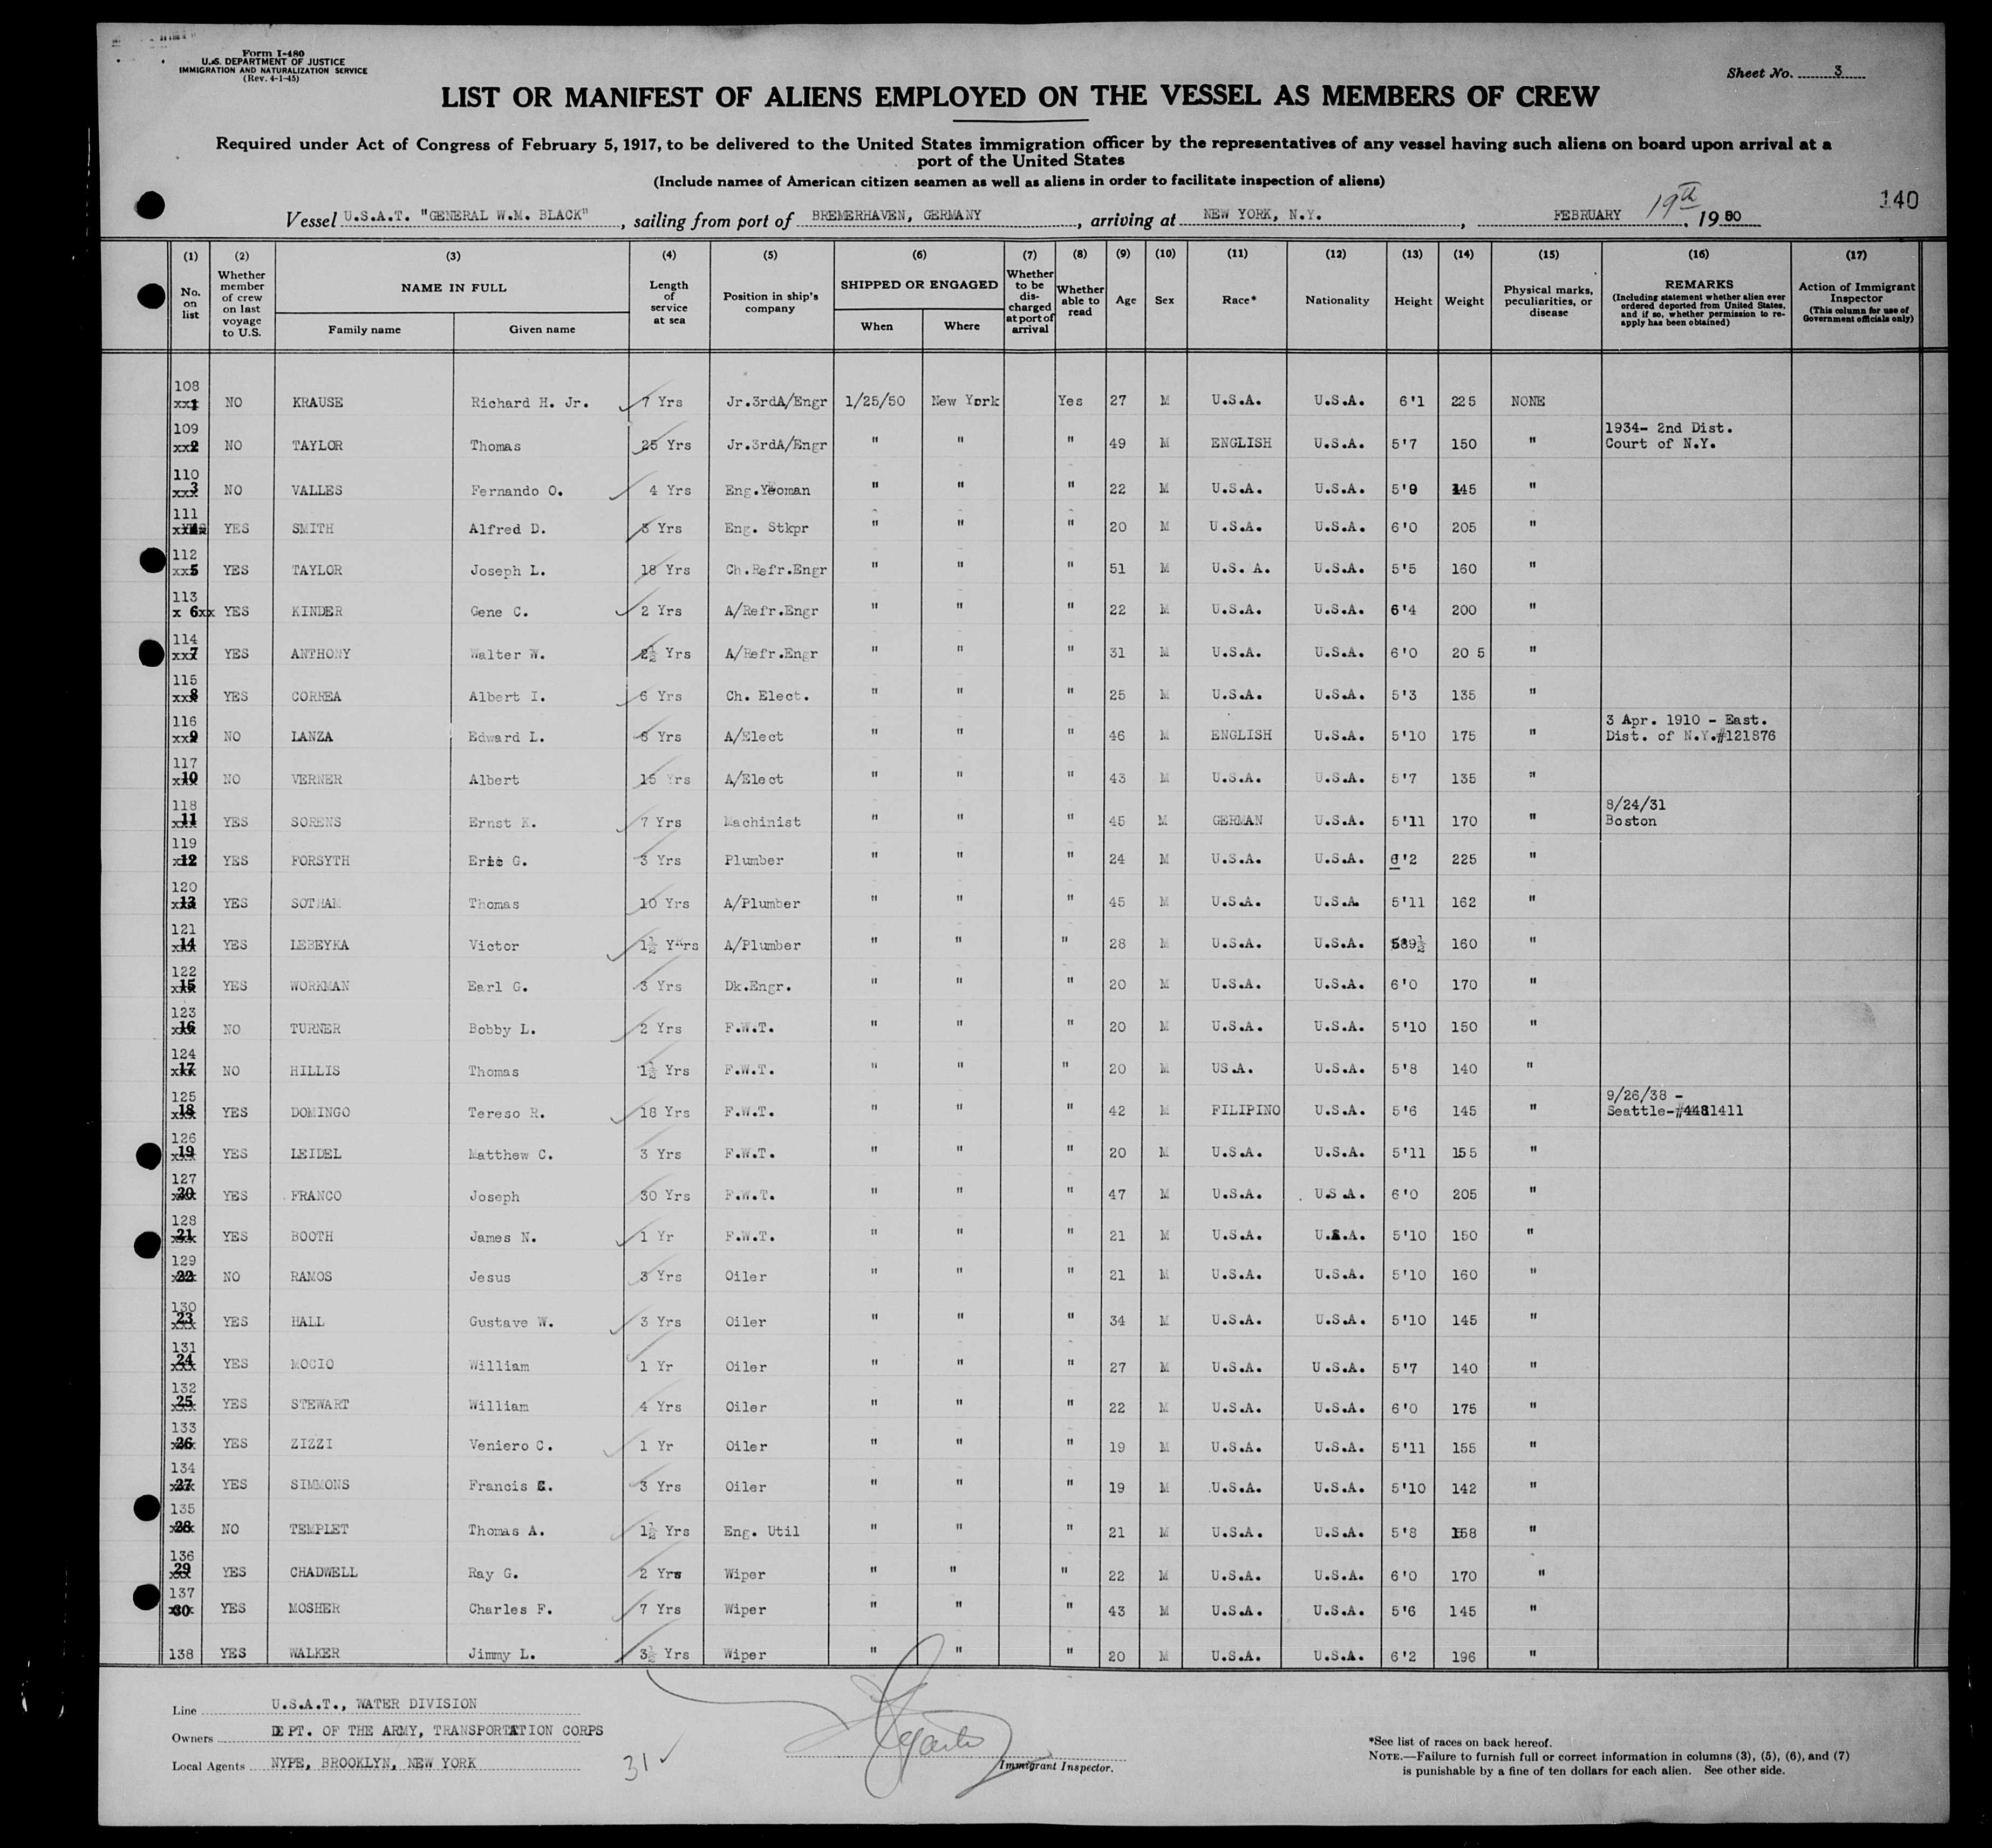 Form I-480
U.S. DEPARTMENT OF JUSTICE
IMMIGRATION AND NATURALIZATION SERVICE
(Rev. 4-1-45)
Sheet No. 3
LIST OR MANIFEST OF ALIENS EMPLOYED ON THE VESSEL AS MEMBERS OF CREW
Required under Act of Congress of February 5, 1917, to be delivered to the United States immigration officer by the representatives of any vessel having such aliens on board upon arrival at a
port of the United States
(Include names of American citizen seamen as well as aliens in order to facilitate inspection of aliens)
140
Vessel U.S.A.T. "GENERAL W.M. BLACK", sailing from port of BREMERHAVEN, GERMANY, arriving at NEW YORK, N.Y., FEBRUARY 19th, 1950
(1) No. on list
(2) Whether member of crew on last voyage to U.S.
(3) NAME IN FULL
Family name
Given name
(4) Length of service at sea
(5) Position in ship's company
(6) SHIPPED OR ENGAGED
When
Where
(7) Whether to be discharged at port of arrival
(8) Whether able to read
(9) Age
(10) Sex
(11) Race*
(12) Nationality
(13) Height
(14) Weight
(15) Physical marks, peculiarities, or disease
(16) REMARKS
(Including statement whether alien ever ordered deported from United States, and if so, whether permission to re-apply has been obtained)
(17) Action of Immigrant Inspector
(This column for use of Government officials only)
108 xx1 NO KRAUSE Richard H. Jr. 7 Yrs Jr.3rdA/Engr 1/25/50 New York Yes 27 M U.S.A. U.S.A. 6'1 225 NONE
109 xx2 NO TAYLOR Thomas 25 Yrs Jr.3rdA/Engr " " " 49 M ENGLISH U.S.A. 5'7 150 " 1934- 2nd Dist. Court of N.Y.
110 xx3 NO VALLES Fernando O. 4 Yrs Eng.Yeoman " " " 22 M U.S.A. U.S.A. 5'9 145 "
111 YES SMITH Alfred D. 3 Yrs Eng. Stkpr " " " 20 M U.S.A. U.S.A. 6'0 205 "
112 xx5 YES TAYLOR Joseph L. 18 Yrs Ch.Refr.Engr " " " 51 M U.S. A. U.S.A. 5'5 160 "
113 x 6xx YES KINDER Gene C. 2 Yrs A/Refr.Engr " " " 22 M U.S.A. U.S.A. 6'4 200 "
114 xx7 YES ANTHONY Walter W. 2½ Yrs A/Refr.Engr " " " 31 M U.S.A. U.S.A. 6'0 20 5 "
115 xx8 YES CORREA Albert I. 6 Yrs Ch. Elect. " " " 25 M U.S.A. U.S.A. 5'3 135 "
116 xx9 NO LANZA Edward L. 6 Yrs A/Elect " " " 46 M ENGLISH U.S.A. 5'10 175 " 3 Apr. 1910 - East. Dist. of N.Y.#121876
117 x10 NO VERNER Albert 15 Yrs A/Elect " " " 43 M U.S.A. U.S.A. 5'7 135 "
118 11 YES SORENS Ernst K. 7 Yrs Machinist " " " 45 M GERMAN U.S.A. 5'11 170 " 8/24/31 Boston
119 x12 YES FORSYTH Eric G. 3 Yrs Plumber " " " 24 M U.S.A. U.S.A. 6'2 225 "
120 x13 YES SOTHAM Thomas 10 Yrs A/Plumber " " " 45 M U.S.A. U.S.A 5'11 162 "
121 14 YES LEBEYKA Victor 1½ Yrs A/Plumber " " " 28 M U.S.A. U.S.A. 160 "
122 15 YES WORKMAN Earl G. 3 Yrs Dk.Engr. " " " 20 M U.S.A. U.S.A. 6'0 170 "
123 16 NO TURNER Bobby L. 2 Yrs F.W.T. " " " 20 M U.S.A. U.S.A. 5'10 150 "
124 17 NO HILLIS Thomas 1½ Yrs F.W.T. " " " 20 M US.A. U.S.A. 5'8 140 "
125 18 YES DOMINGO Tereso R. 18 Yrs F.W.T. " " " 42 M FILIPINO U.S.A. 5'6 145 " 9/26/38 - Seattle-#4481411
126 19 YES LEIDEL Matthew C. 3 Yrs F.W.T. " " " 20 M U.S.A. U.S.A. 5'11 155 "
127 20 YES FRANCO Joseph 30 Yrs F.W.T. " " " 47 M U.S.A. U.S.A. 6'0 205 "
128 21 YES BOOTH James N. 1 Yr F.W.T. " " " 21 M U.S.A. U.S.A. 5'10 150 "
129 22 NO RAMOS Jesus 3 Yrs Oiler " " " 21 M U.S.A. U.S.A. 5'10 160 "
130 23 YES HALL Gustave W. 3 Yrs Oiler " " " 34 M U.S.A. U.S.A. 5'10 145 "
131 24 YES MOCIO William 1 Yr Oiler " " " 27 M U.S.A. U.S.A. 5'7 140 "
132 25 YES STEWART William 4 Yrs Oiler " " " 22 M U.S.A. U.S.A. 6'0 175 "
133 26 YES ZIZZI Veniero C. 1 Yr Oiler " " " 19 M U.S.A. U.S.A. 5'11 155 "
134 27 YES SIMMONS Francis 3 Yrs Oiler " " " 19 M U.S.A. U.S.A. 5'10 142 "
135 28 NO TEMPLET Thomas A. 1½ Yrs Eng. Util " " " 21 M U.S.A. U.S.A. 5'8 158 "
136 29 YES CHADWELL Ray G. 2 Yrs Wiper " " " 22 M U.S.A. U.S.A. 6'0 170 "
137 30 YES MOSHER Charles F. 7 Yrs Wiper " " " 43 M U.S.A. U.S.A. 5'6 145 "
138 YES WALKER Jimmy L. 3½ Yrs Wiper " " " 20 M U.S.A. U.S.A. 6'2 196 "
Line U.S.A.T., WATER DIVISION
Owners DEPT. OF THE ARMY, TRANSPORTATION CORPS
Local Agents NYPE, BROOKLYN, NEW YORK
31 ✓
Immigrant Inspector.
*See list of races on back hereof.
NOTE.—Failure to furnish full or correct information in columns (3), (5), (6), and (7)
is punishable by a fine of ten dollars for each alien. See other side.